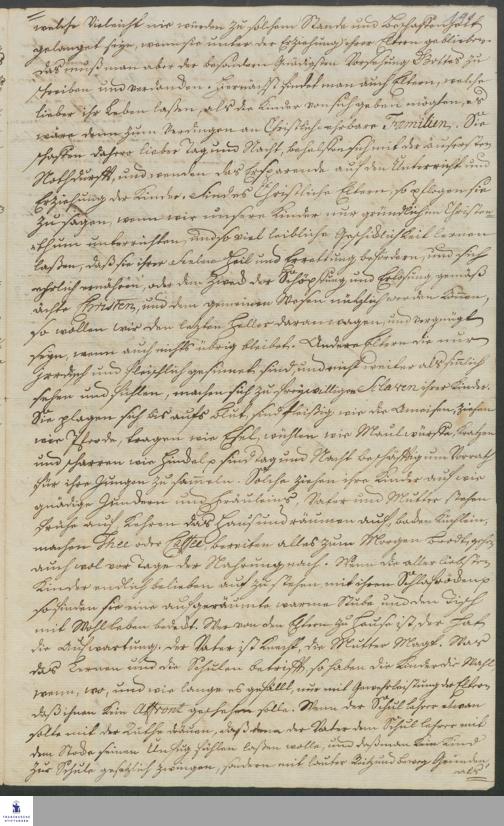 welche Vieleicht nie würden zu solchem Stande und Beschaffenheit
gelanget seyn, wenn sie unter der Erziehung ihrer Eltern geblieben.
Das muß man aber der besondern Gnädigen Vorsehung Gottes zu
schreiben und verdancken. Hernach findet man auch Eltern, welche
lieber ihr Leben laßen, als die Kinder von sich geben mögten, es
wäre denn zum Verdingen an Christlich-ehrbare Familien. Sie
schaffen dahero lieber Tag und Nacht, behelfen sich mit der äusersten
Nothdurfft, und wenden das Ersparende auf den Unterricht und
Erziehung der Kinder. Sind es Christliche Eltern, so pflegen sie
zu sagen, wenn wir unsere Kinder nur gründlich im Christen
thum unterrichten, und so viel leibliche Geschicklichkeit lernen
laßen, daß sie ihrer Seelen Heil und Errettung befördern, und sich
ehrlich ernähren, oder dem Zweck der Schöpfung und Erlösung gemäß
ächte Christen, und dem gemeinen Wesen nützlich werden können,
so wollen wir den letzten Heller daran wagen, und vergnügt
seyn, wenn auch nichts übrig bleibet. Andere Eltern die nur
Irrdisch und fleischlich gesinnet sind, und nicht weiter als sinlich
sehen und fühlen, machen sich zu freywilligen Sclaven ihrer Kinder.
Sie plagen sich bis aufs Blut, sind fleißig wie die Ameisen, ziehen
wie Pferde, tragen wie Esel, wühlen wie Maulwürffe, kratzen
und scharren wie Hüner, sind Tag und Nacht beschäfftig um Vorrath
für ihre Jungen zu samlen. Solche ziehen ihre Kinder auf wie
gnädige Junckern und Fräuleins, Vater und Mutter stehen
frühe auf, kehren das Haus und räumen auf, baden Küchlein,
machen Thee oder Caffee, bereiten alles zum Morgen Brodt,
auch wol vor Tage der Nahrung nach. Wenn die aller liebsten
Kinder endlich belieben auf zu stehen mit ihren Schlafröcken,
so finden sie eine aufgeräumte warme Stube und den Tisch
mit Wohlleben bedeckt. Wer von den Eltern zu Hause ist, der hat
die Aufwartung. Der Vater ist Knecht, die Mutter Magd. Was
das Lernen und die Schulen betrifft, so haben die Kinder die Wahl
wenn, wo, und wie lange es gefällt, nur mit Gewehrleistung der Eltern
daß ihnen kein Affront geschehen solle. Wenn der Schullehrer etwan
solte mit der Ruthe dräuen, daß denn der Vater dem Schul lehrer mit
dem Stocke seinen Unfug fühlen laßen wolle, und daß man kein Kind
zur Schule gesetzlich zwingen, sondern mit lauter
als
FRANCKESCHE
STIFTUNGEN